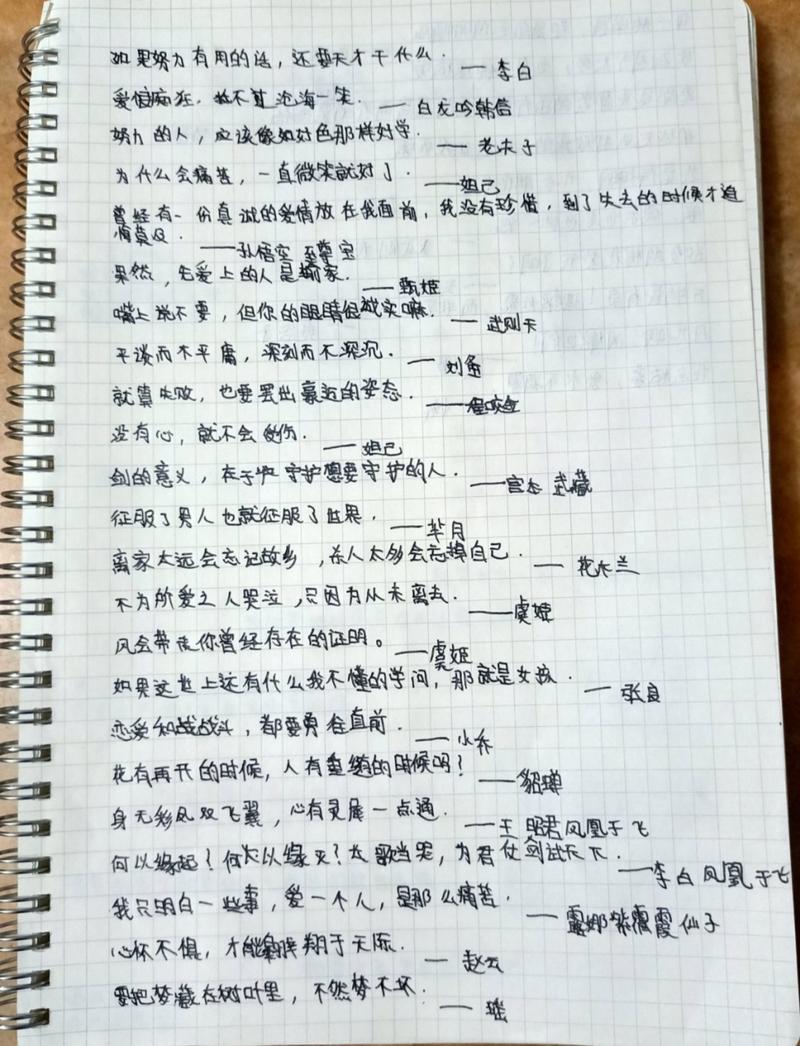 如果努力有用的话，还要天才干什么．——李白
爱恨痴狂．敌不过沧海一笑．——白龙吟韩信
努力的人，应该像好色那样好学．——老夫子
为什么会痛苦，一直微笑就好了．——妲己
曾经有一份真诚的爱情放在我面前，我没有珍惜，到了失去的时候才追
悔莫及．——孙悟空 至尊宝
果然，先爱上的人是输家．——甄姬
嘴上说不要，但你的眼睛很诚实嘛．——武则天
平淡而不平庸，深刻而不深沉．——刘备
就算失败，也要摆出豪迈的姿态．——程咬金
没有心，就不会受伤．——妲己
剑的意义，在于守护想要守护的人．——宫本 武藏
征服了男人也就征服了世界．——芈月
离家太远会忘记故乡，杀人太多会忘掉自己．——花木兰
不为所爱之人哭泣，只因为从未离去．——虞姬
风会带走你曾经存在的证明。——虞姬
如果这世上还有什么我不懂的学问，那就是女孩．——张良
恋爱和战战斗，都要勇往直前．——小乔
花有再开的时候，人有重逢的时候吗？——貂蝉
身无彩凤双飞翼，心有灵犀一点通．——王昭君凤凰于飞
何以缘起？何以缘灭？长歌当哭，为君仗剑试天下．——李白凤凰于飞
我只明白一些事，爱一个人，是那么痛苦．——露娜紫霞仙子
心怀不惧，才能翱翔于天际．——赵云
要把梦藏在树叶里，不然梦不坏．——瑶